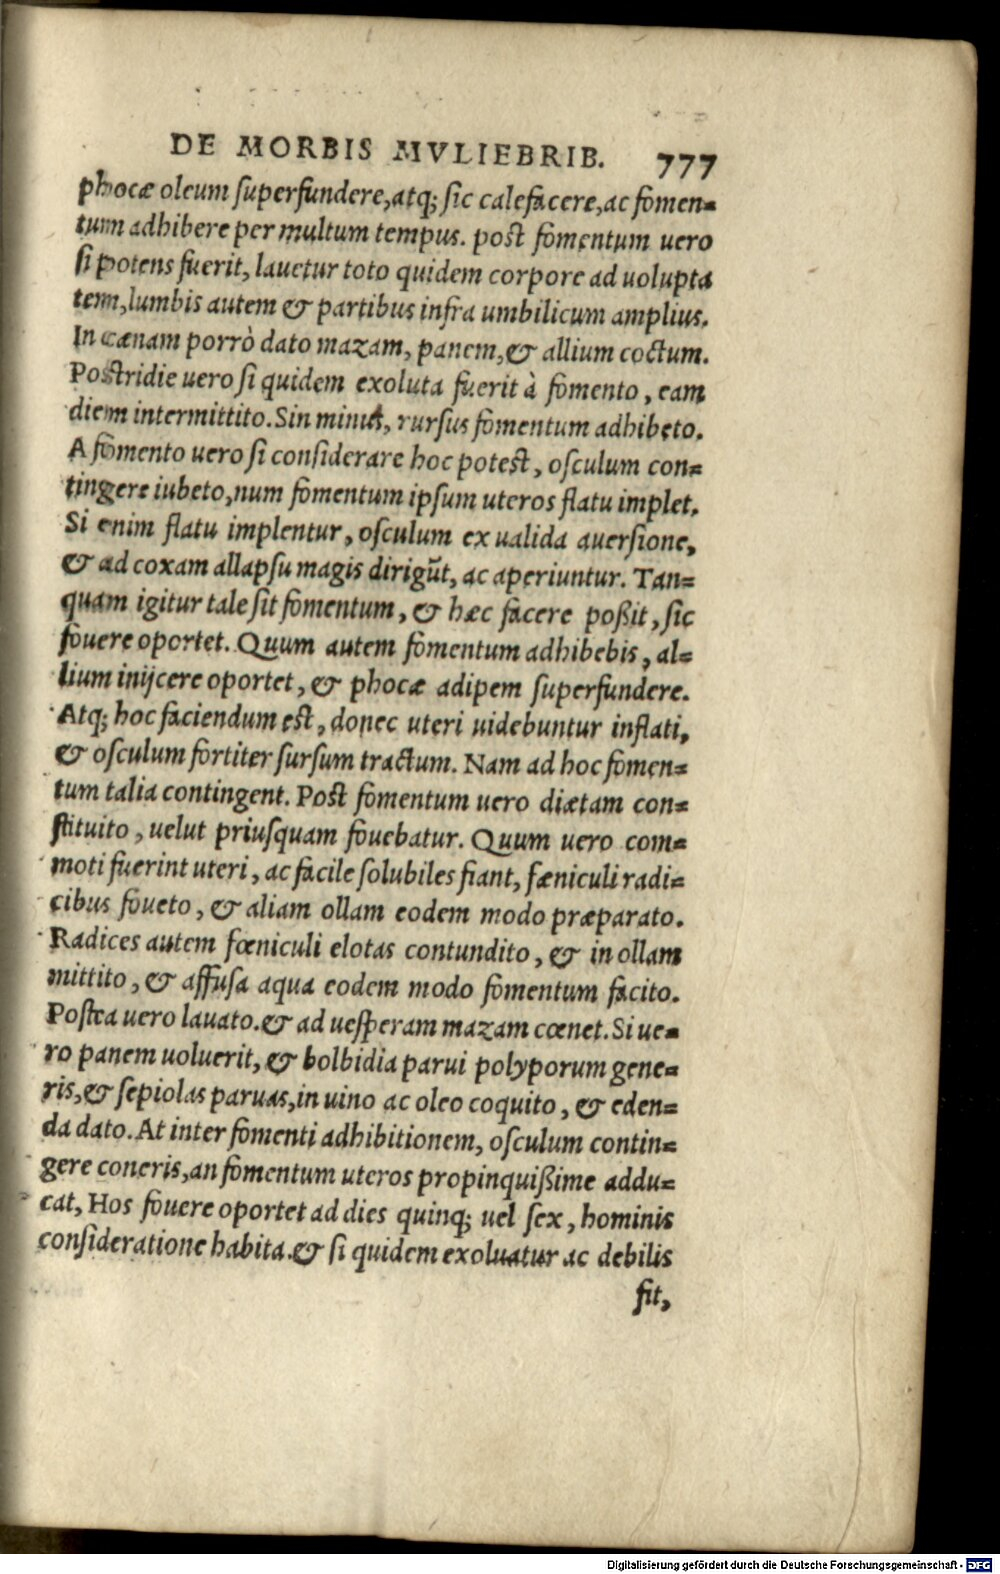 DE MORBIS MVLIEBRIB. 777
phocæ oleum superfundere, atq; sic calefacere, ac fomen=
tum adhibere per multum tempus. post fomentum uero
si potens fuerit, lauetur toto quidem corpore ad uolupta
tem, lumbis autem & partibus infra umbilicum amplius.
In cænam porrò dato mazam, panem, & allium coctum.
Postridie uero si quidem exoluta fuerit à fomento, eam
diem intermittito. Sin minus, rursus fomentum adhibeto.
A fomento uero si considerare hoc potest, osculum con=
tingere iubeto, num fomentum ipsum uteros flatu implet.
Si enim flatu implentur, osculum ex ualida auersione,
& ad coxam allapsu magis dirigūt, ac aperiuntur. Tan=
quam igitur tale sit fomentum, & hæc facere poßit, sic
fouere oportet. Quum autem fomentum adhibebis, al=
lium inijcere oportet, & phocæ adipem superfundere.
Atq; hoc faciendum est, donec uteri uidebuntur inflati,
& osculum fortiter sursum tractum. Nam ad hoc fomen=
tum talia contingent. Post fomentum uero diætam con=
stituito, uelut priusquam fouebatur. Quum uero com=
moti fuerint uteri, ac facile solubiles fiant, fæniculi radi=
cibus foueto, & aliam ollam eodem modo præparato.
Radices autem fœniculi elotas contundito, & in ollam
mittito, & affusa aqua eodem modo fomentum facito.
Postea uero lauato. & ad uesperam mazam cœnet. Si ue=
ro panem uoluerit, & bolbidia parui polyporum gene=
ris, & sepiolas paruas, in uino ac oleo coquito, & eden=
da dato. At inter fomenti adhibitionem, osculum contin=
gere coneris, an fomentum uteros propinquißime addu=
cat, Hos fouere oportet ad dies quinq; uel sex, hominis
consideratione habita. & si quidem exoluatur ac debilis
sit,
Digitalisierung gefördert durch die Deutsche Forschungsgemeinschaft - DFG